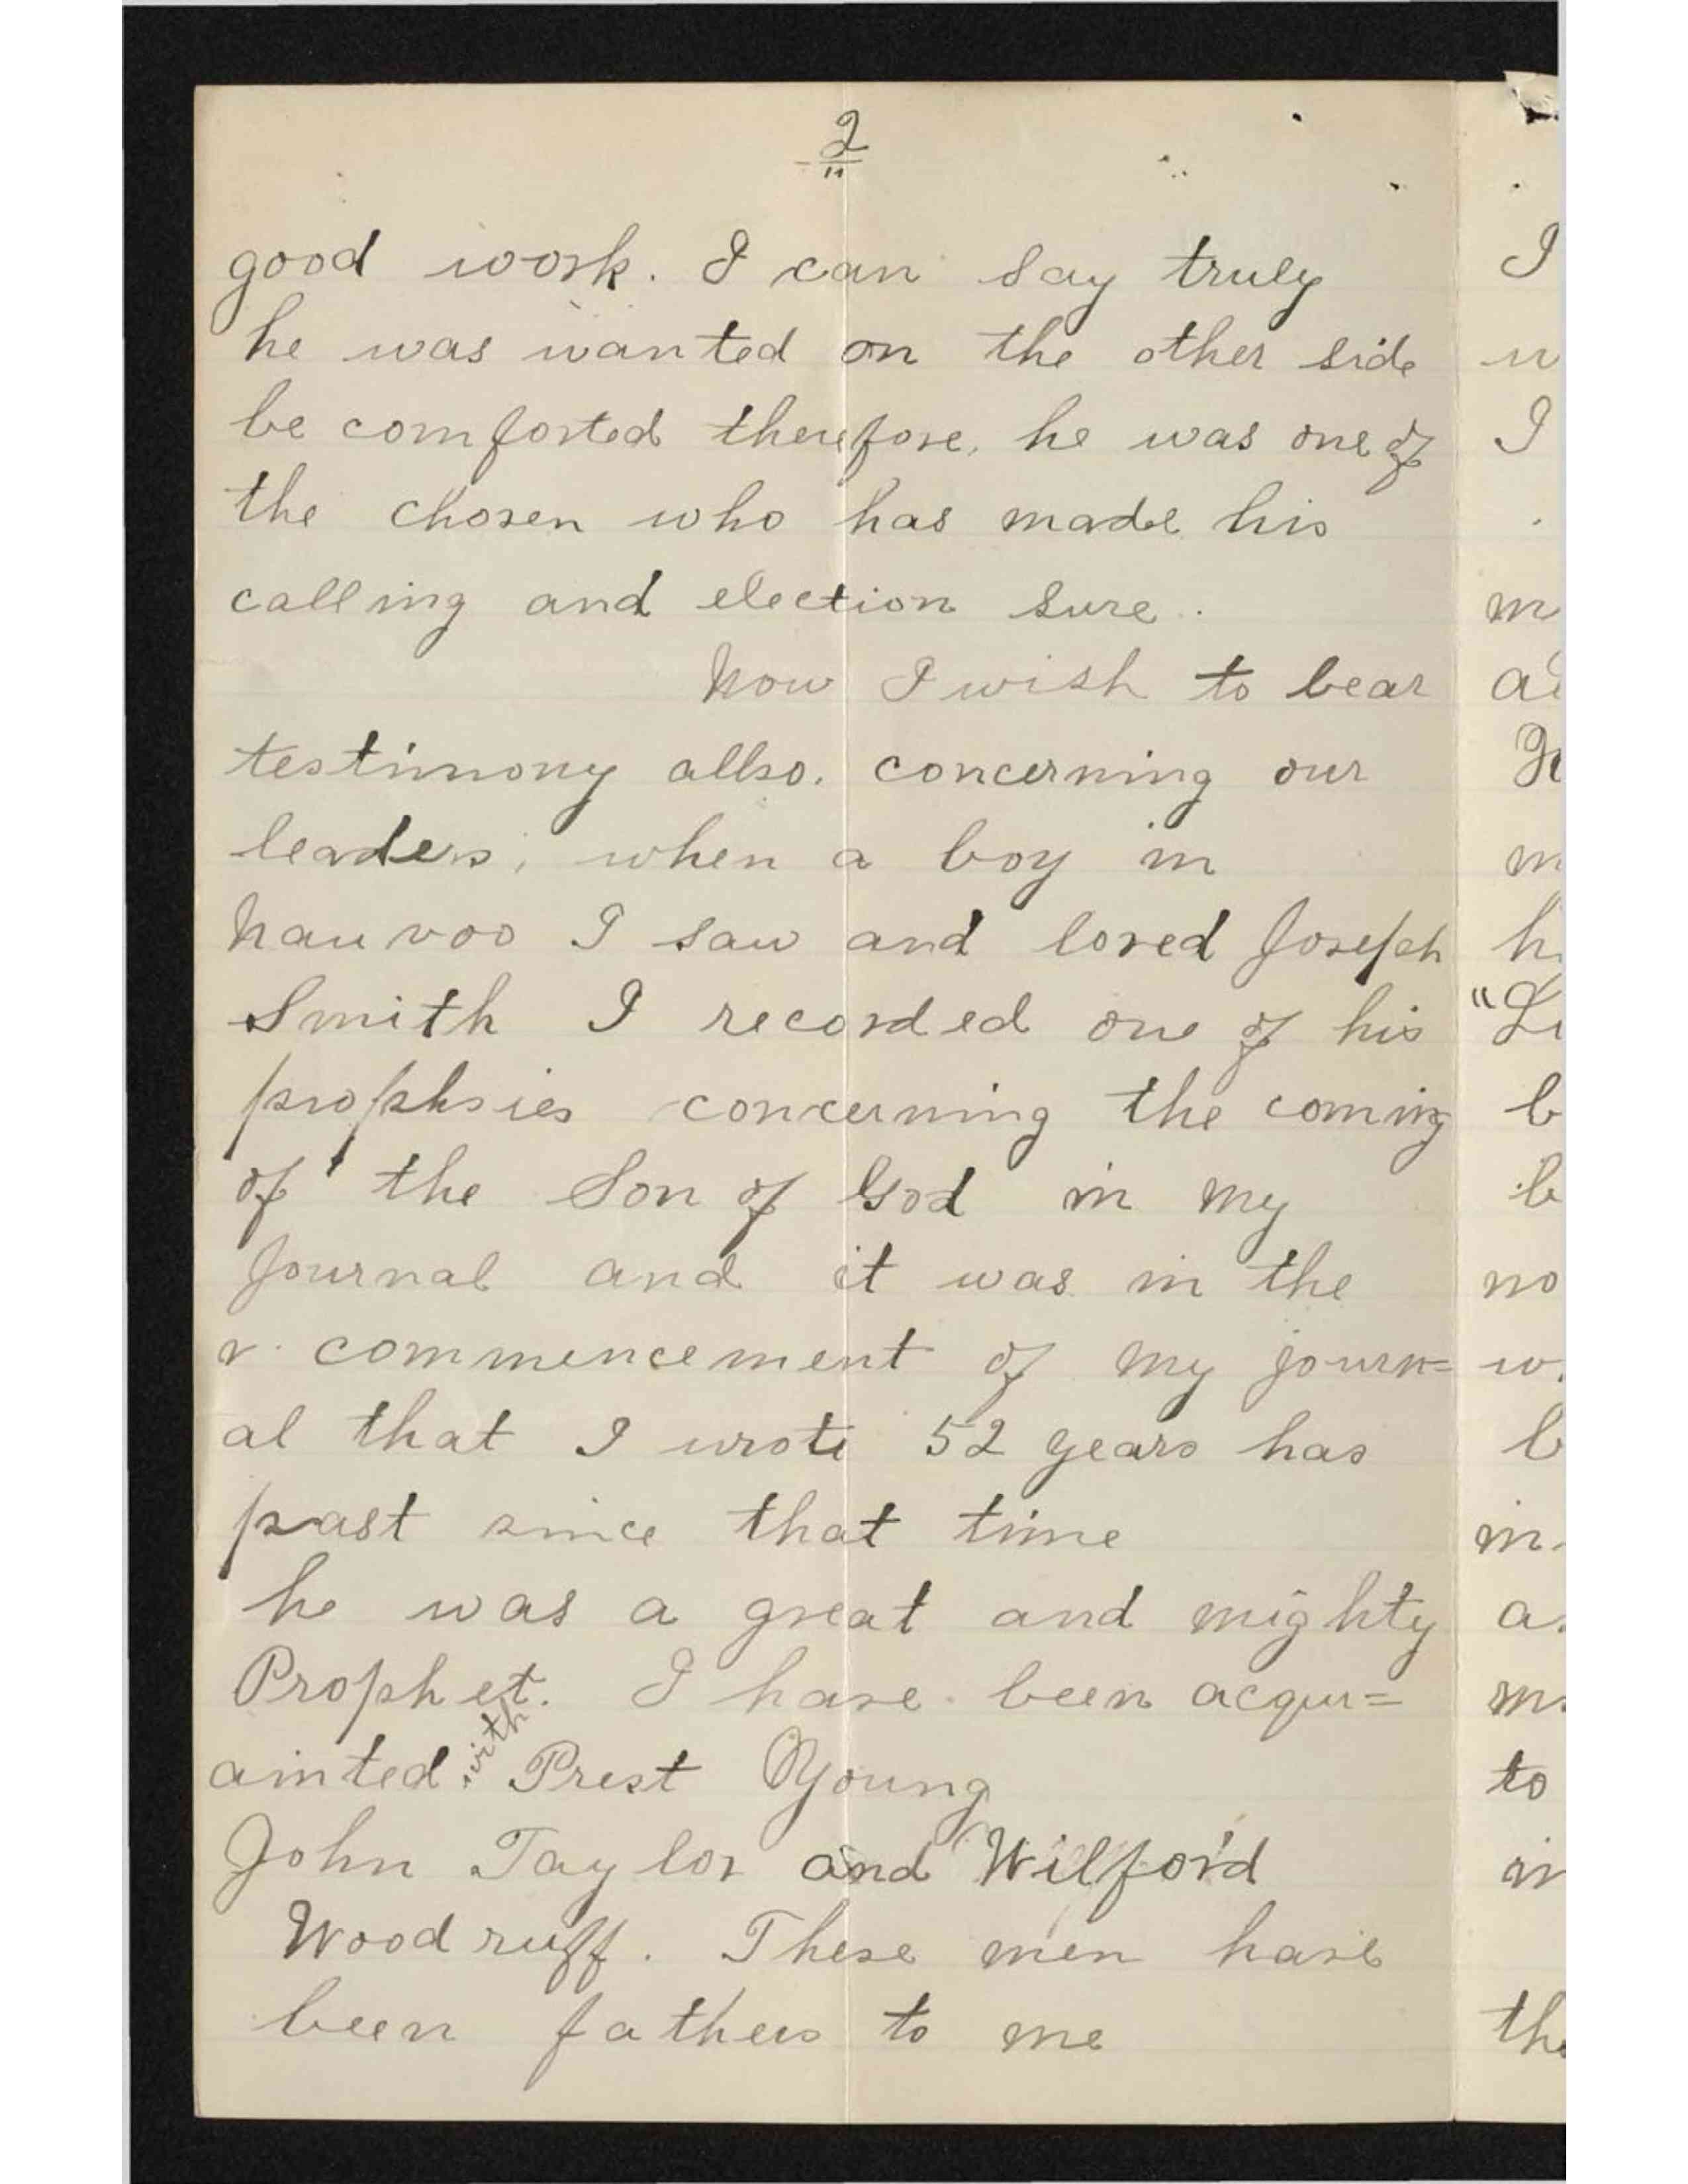 2
"
good work. I can say truly
he was wanted on the other side
be comforted therefore, he was one of
the chosen who has made his
calling and election sure.
Now I wish to bear
testimony allso. concerning our
leaders, when a boy in
Nauvoo I saw and loved Joseph
Smith I recorded one of his
prophsies concerning the coming
of the Son of God in my
Journal and it was in the
commencement of my journ=
al that I wrote 52 years has
past since that time
he was a great and mighty
Prophet. I have been acqu=
ainted with Prest Young
John Taylor and Wilford
Woodruff. These men have
been fathers to me
I
I
"
b
b
no
b
in
to